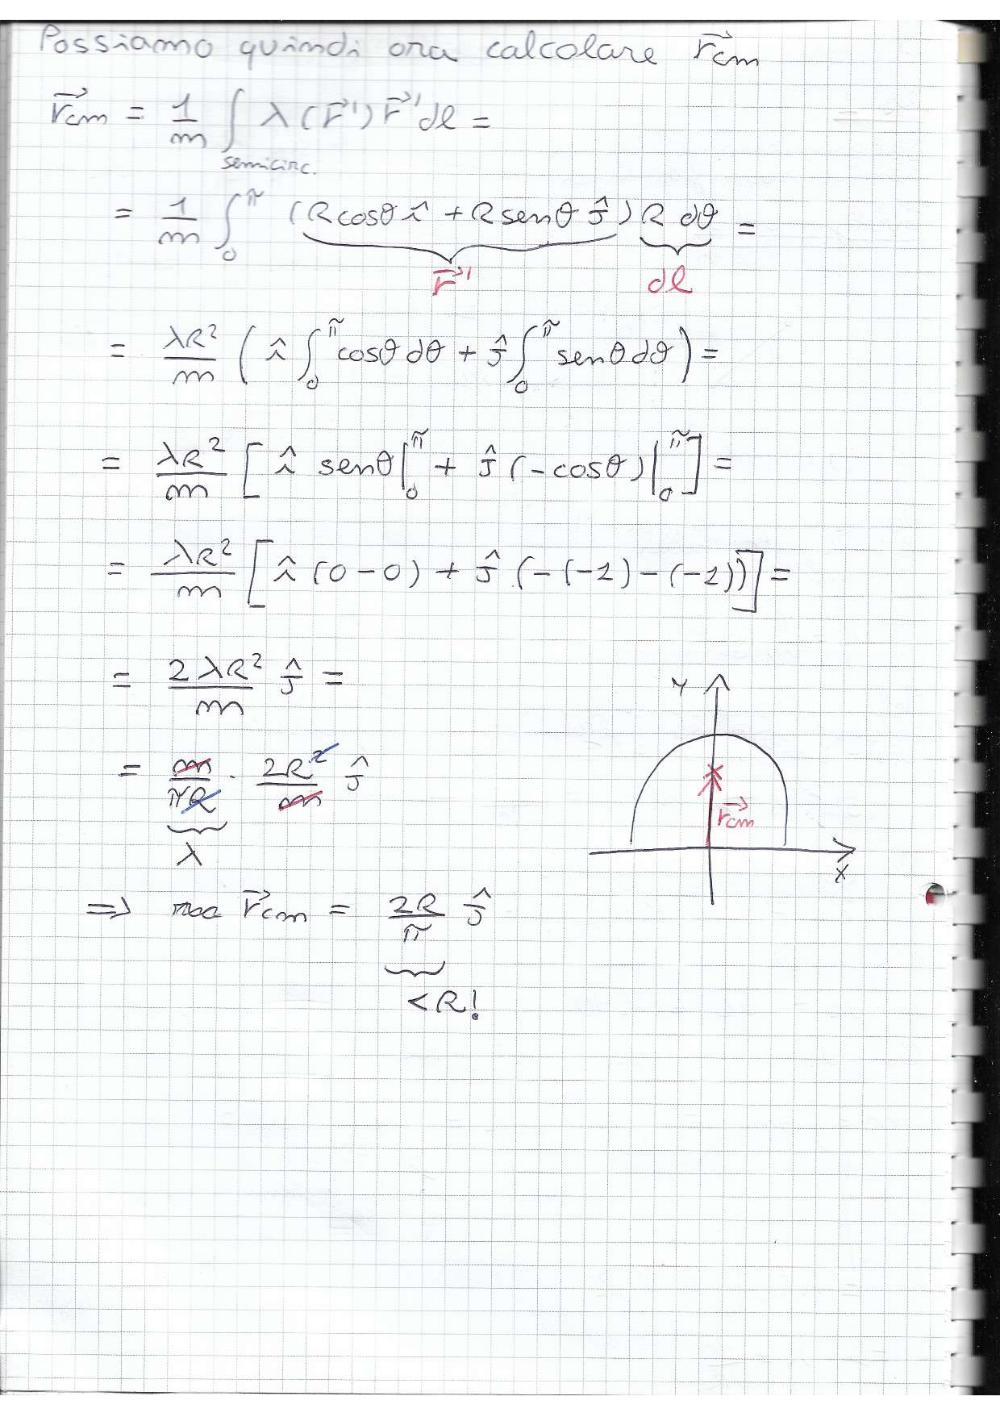 Possiamo quindi ora calcolare r⃗cm
r⃗cm = 1/m ∫semicirc. λ(r⃗')r⃗'dl =
= 1/m ∫₀^π (Rcosθ î + Rsenθ ĵ) R dθ =
r⃗' dl
= λR²/m ( î ∫₀^π cosθ dθ + ĵ ∫₀^π senθ dθ ) =
= λR²/m [ î senθ|₀^π + ĵ (-cosθ)|₀^π ] =
= λR²/m [ î (0-0) + ĵ (-(-1)-(-1)) ] =
= 2λR²/m ĵ =
= m/πR · 2R²/m ĵ
λ
=> r⃗cm = 2R/π ĵ
<R!
Y
r⃗cm
X